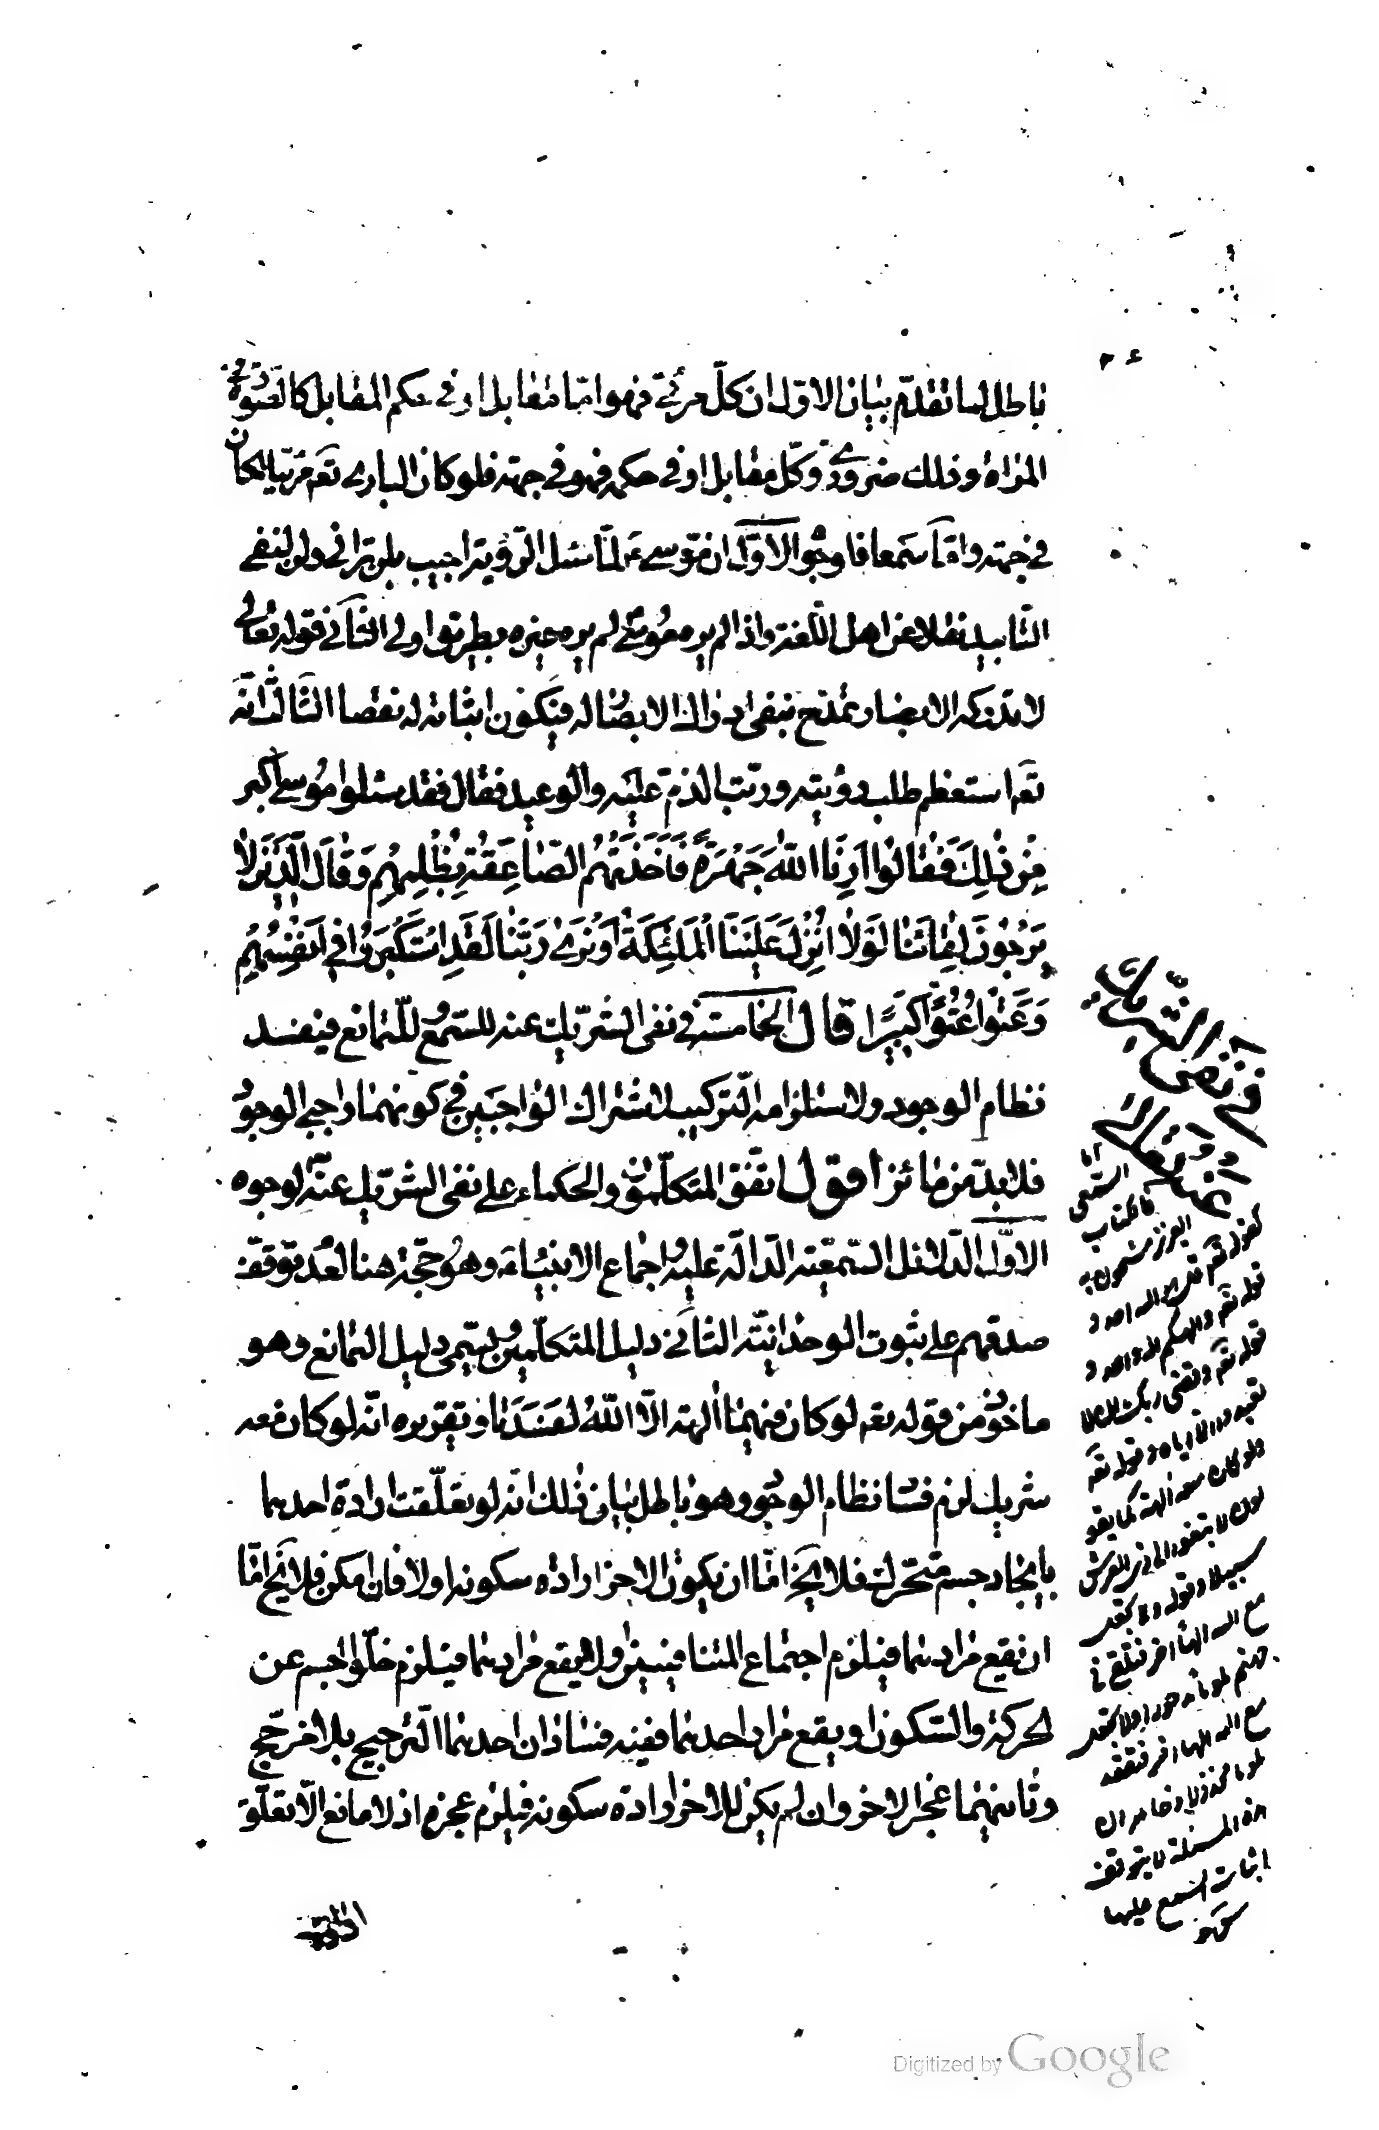 ٢٤
باطل لما تقدم بيان الاول ان كل مرئي فهو اما مقابل او في حكم المقابل كالصورة في
المراة وذلك ضروري وكل مقابل او في حكمه فهو في جهة فلو كان الباري تعم مرئيا لكان
في جهة واما سمعا فلوجوه الاول ان موسى ع لما سئل الرؤية اجيب بلن تراني ولن لنفي
التابيد نقلا عن اهل اللغة واذا لم يره موسى لم يره غيره بطريق اولى الثاني قوله تعالى
لا تدركه الابصار تمدح بنفي ادراك الابصار له فيكون اثباته له نقصا الثالث انه
تعم استعظم طلب رؤيته ورتب الذم عليه والوعيد فقال فقد سئلوا موسى اكبر
مِنْ ذٰلِكَ فَقٰالُوا اَرِنَا اللّٰهَ جَهْرَةً فَاَخَذَتْهُمُ الصّٰاعِقَةُ بِظُلْمِهِمْ وَقٰالَ الَّذينَ لاٰ
يَرْجُونَ لِقٰائَنٰا لَوْلاٰ اُنْزِلَ عَلَيْنَا الْمَلٰئِكَةُ اَوْ نَرىٰ رَبَّنٰا لَقَدِ اسْتَكْبَرُوا في اَنْفُسِهِمْ
وَعَتَوْا عُتُوًّا كَبيرًا قال الخامسة في نفي الشريك عنه للسمع وللتمانع فيفسد
نظام الوجود ولاستلزامه التركيب لاشتراك الواجبين في كونهما واجبي الوجود
فلا بد من مائز اقول اتفق المتكلمون والحكماء على نفي الشريك عنه لوجوه
الاول الدلائل السمعية الدالة عليه واجماع الانبياء وهو حجة هنا لعدم توقف
صدقهم على ثبوت الوحدانية الثاني دليل المتكلمين ويسمى دليل التمانع وهو
ماخوذ من قوله تعم لو كان فيهما اٰلهة الا اللّٰه لفسدتا وتقريره انه لو كان معه
شريك لزم فساد نظام الوجود وهو باطل بيان ذلك انه لو تعلقت ارادة احدهما
بايجاد جسم متحرك فلا يخ اما ان يكون للاخر ارادة سكونه او لا فان امكن فلا يخ اما
ان يقع مرادهما فيلزم اجتماع المتنافيين او لا يقع مرادهما فيلزم خلو الجسم عن
الحركة والسكون او يقع مراد احدهما ففيه فسادان احدهما الترجيح بلا مرجح
وثانيهما عجز الاخر وان لم يكن للاخر ارادة سكونه فيلزم عجزه اذ لا مانع الا تعلق
ارادة
في نفي الشريك
عنه تعالى
اما السمعي
فالكتاب
العزيز مشحون به
كقوله تعم قل هو الله احد و
قوله تعم والهكم اله واحد و
قوله تعم وقضى ربك ان لا
تعبدوا الا اياه وقوله تعم
ولو كان معه الهة كما يقو
لون لابتغوا الى ذي العرش
سبيلا وقوله ولا تجعل
مع الله الها اخر فتلقى في
جهنم ملوما مدحورا لا تجعل
مع الله الها اخر فتقعد
هذه المسئلة لا يتوقف
اثبات السمع عليها